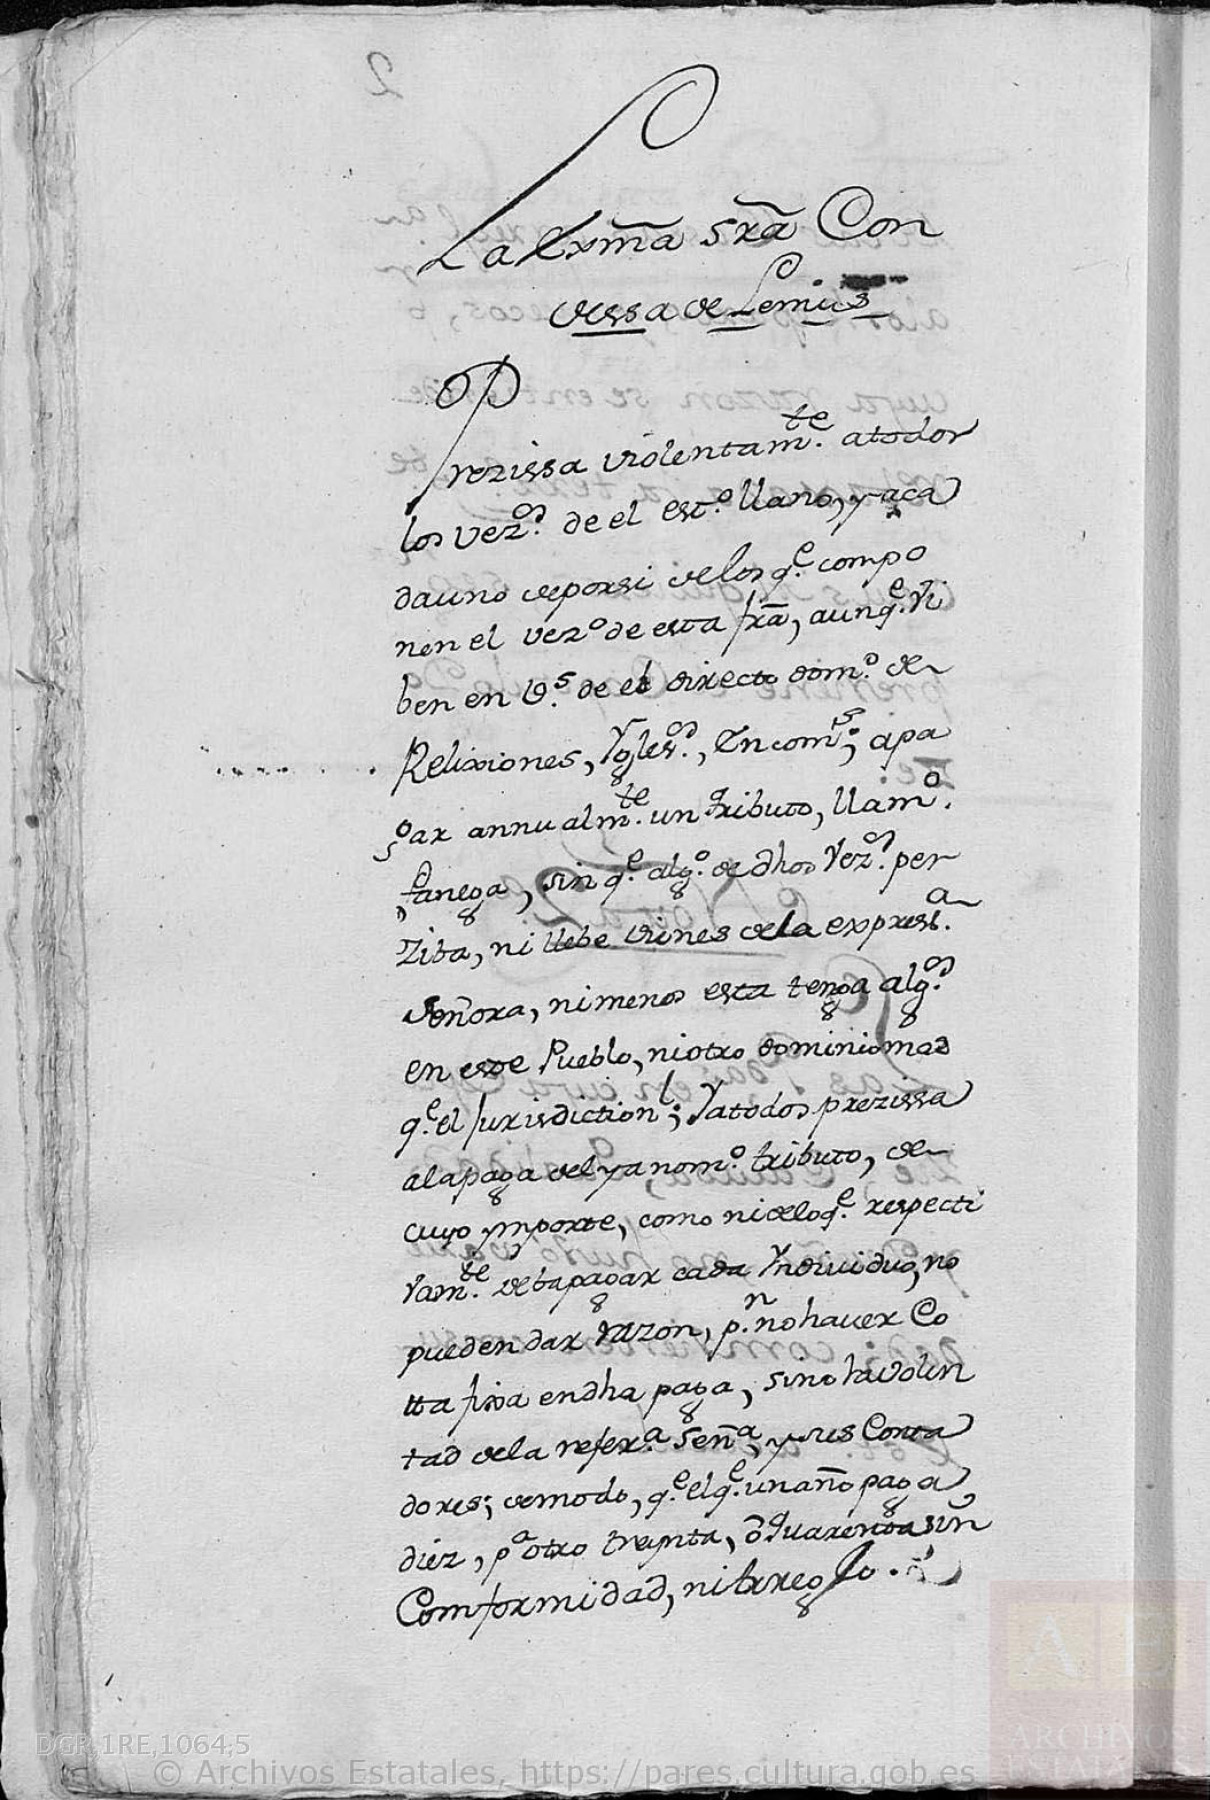 La Exmã srã Con
dessa de Lemus
Prezissa violentam.te atodos
los Vez.os de el est.o llano, y aca
dauno deporsi delos q.e compo
nen el vez.o de esta frã, aunq.e Vi
ben en Cs.s de el directo dom.o de
Relixiones, Ygles.os, Encom.s; apa
gar annualm.te un tributo, llam.o
fanega, sin q.e alg.o de dhos Vez.os per
ziba, ni llebe vienes dela expres.a
Señora, nimenos esta tenga alg.os
en este Pueblo, niotro dominiomas
q.e el Jurisdiction.l; Yatodos prezissa
alapaga del ya nom.o tributo, de
cuyo ymporte, como nideloq.e respecti
vam.te debapagar cada Yndividuo, no
pueden dar razon, p.r nohaver Co
tta fixa endha paga, sino lavolun
tad dela refer.a Señ.a, y sus Conta
dores; demodo, q.e elq.e unaño paga
diez, p.a otro treynta, ó quarenta sin
Comformidad, niarreglo.
2
DGR,1RE,1064,5
© Archivos Estatales, https://pares.cultura.gob.es
AE
ARCHIVOS
ESTATALES